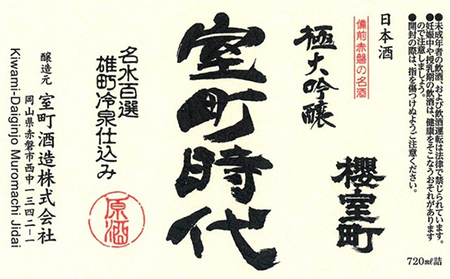 ●未成年者の飲酒、および飲酒運転は法律で禁じられています。
●妊娠中や授乳期の飲酒は、健康をそこなうおそれがあります
ので注意しましょう。
●開封の際は、指を傷つけぬようご注意ください。
720㎖詰
日本酒
櫻室町
備前赤磐の名酒
極大吟醸
室町時代
名水百選
雄町冷泉仕込み
原酒
醸造元 室町酒造株式会社
岡山県赤磐市西中一三四二-一
Kiwami-Daiginjo Muromachi Jidai